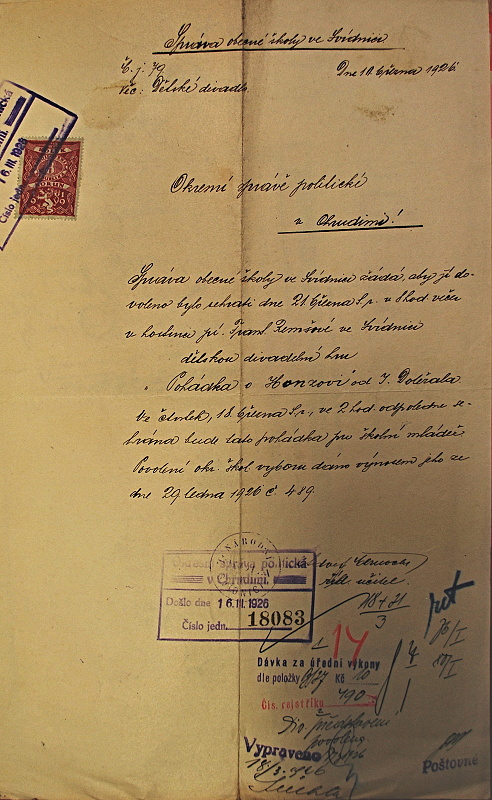 Správa obecné školy ve Svídnici
Č. j. 79
Dne 10. března 1926.
Věc: Dětské divadlo.
16. III. 1926
Číslo jedn.
Okresní správě politické
v Chrudimi!
Správa obecné školy ve Svídnici žádá, aby jí do-
voleno bylo sehráti dne 21. března t. r. v 8 hod. večer
v hostinci pí. Frant. Remšové ve Svídnici
dětskou divadelní hru
„Pohádka o Honzovi" od J. Doležala.
Ve čtvrtek, 18. března t. r., ve 2 hod. odpoledne se-
hrána bude tato pohádka pro školní mládež.
Povolení okr. škol. výboru dáno výnosem jeho ze
dne 29. ledna 1926 č. 489.
říd. učitel.
Okresní správa politická
v Chrudimi.
Došlo dne 16. III. 1926
Číslo jedn. 18083
18 + 21
3
17
Dávka za úřední výkony
dle položky Kč 10
Čís. rejstříku 490
Div. představení
povoleno
Vypraveno
18/3. 926
Poštovné